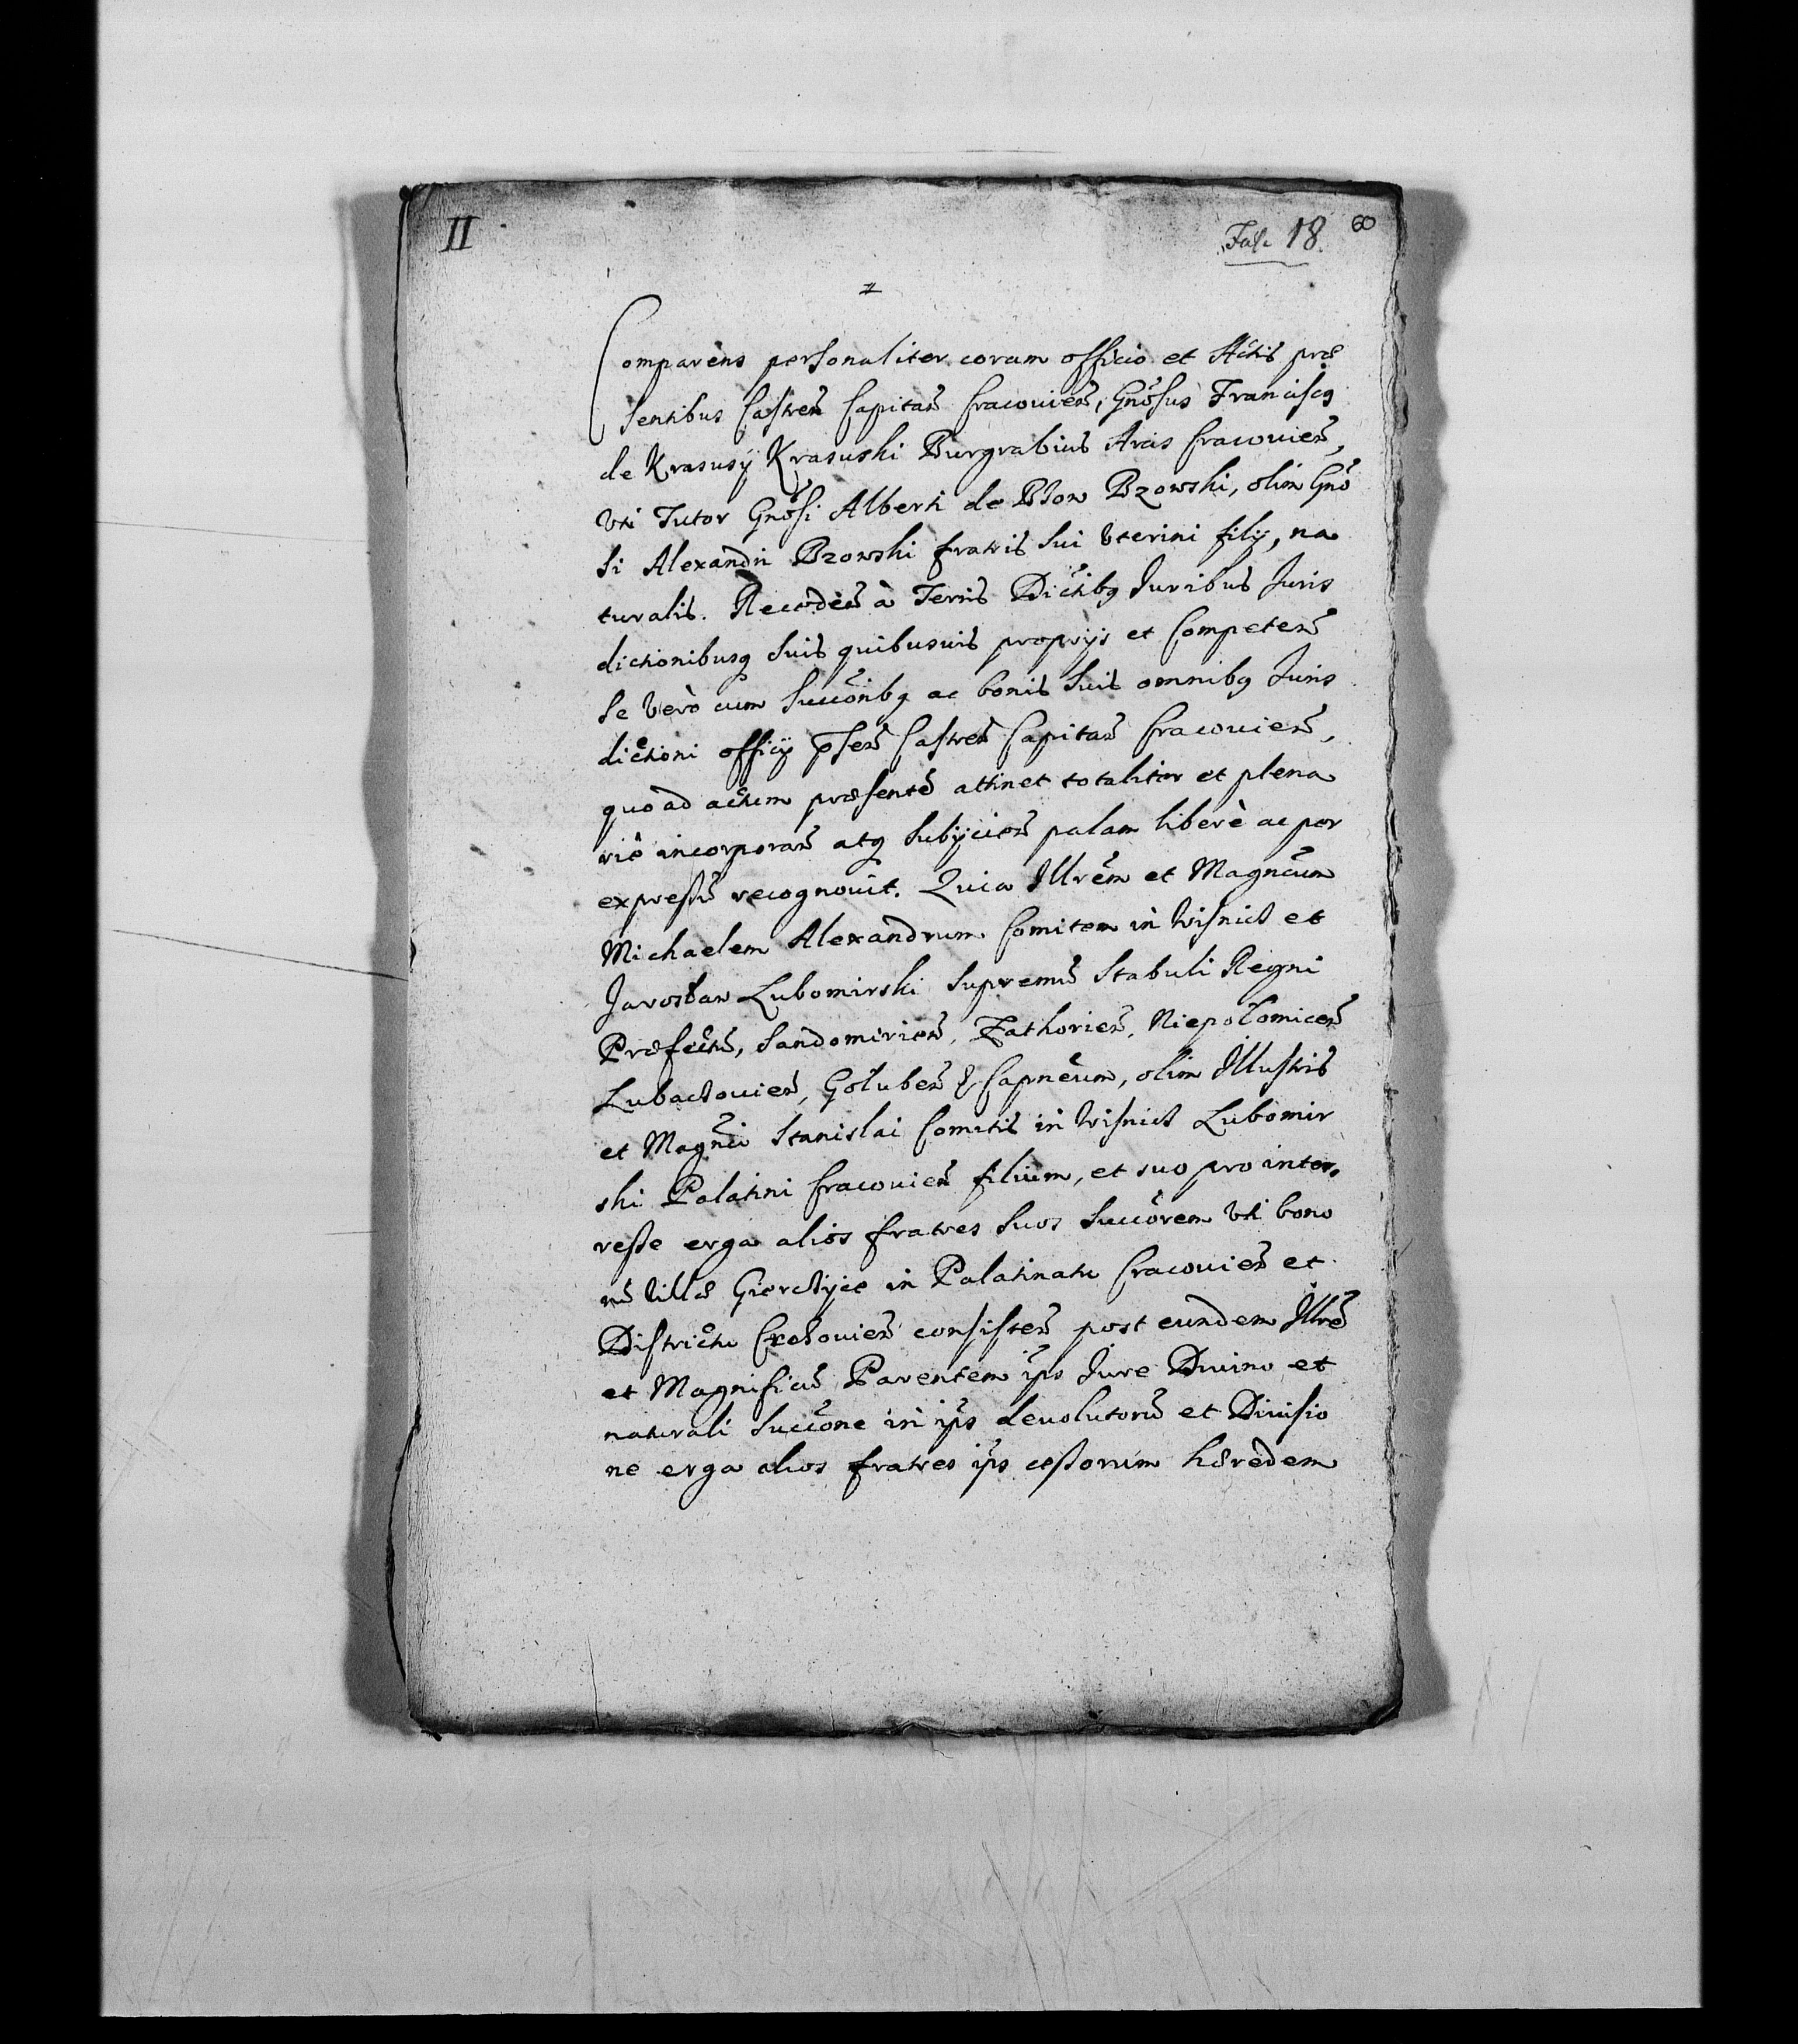 II
Fasc 18.
60
Comparens personaliter coram officio et Actis præ
sentibus Castreñ Capitañ Cracovieñ, Gnõsus Franciscq
de Krasusÿ Krasuski Burgrabius Arcis Cracovieñ,
Vti Tutor Gnõsi Alberti de Bzow Bzowski, olim Gnõ
si Alexandri Bzowski fratris sui Vterini filÿ, na
turalis. Recedeñ à Terris Dictibq Juribus Juris
dictionibusq suis quibusuis proprijs et Competeñ
se Verò cum Succõnibq ac bonis suis omnibq Juris
dictioni officÿ p̃señ Castreñ Capitañ Cracouieñ,
quo ad actum præsentẽ attinet totaliter et plena
riè incorporañ atq subÿcieñ palam liberè ac per
expressũ recognouit. Quia Illrẽm et Magnẽum
Michaelem Alexandrum Comitem in Wisnicz et
Jarosław Lubomirski Supremũ Stabuli Regni
Præfectũ, Sandomirieñ, Zathorieñ, Niepołomiceñ
Lubaczouieñ, Gołubeñ & Capnẽum, olim Illustris
et Magnẽi Stanislai Comitis in Wisnicz Lubomir
ski Palatini Cracouieñ filium, et suo pro inte-
resse erga aliós fratres suos Succõrem Vti bono
rũ Villæ Gierczÿce in Palatinatu Cracouieñ et
Districtu Czchouieñ consisteñ post eundem Illrẽ
et Magnificũ Parentem ip̃s Jure Diuino et
naturali Succõne in ip̃s deuolutorũ et Diuisio
ne erga alios fratres ip̃s cessorum hæredem